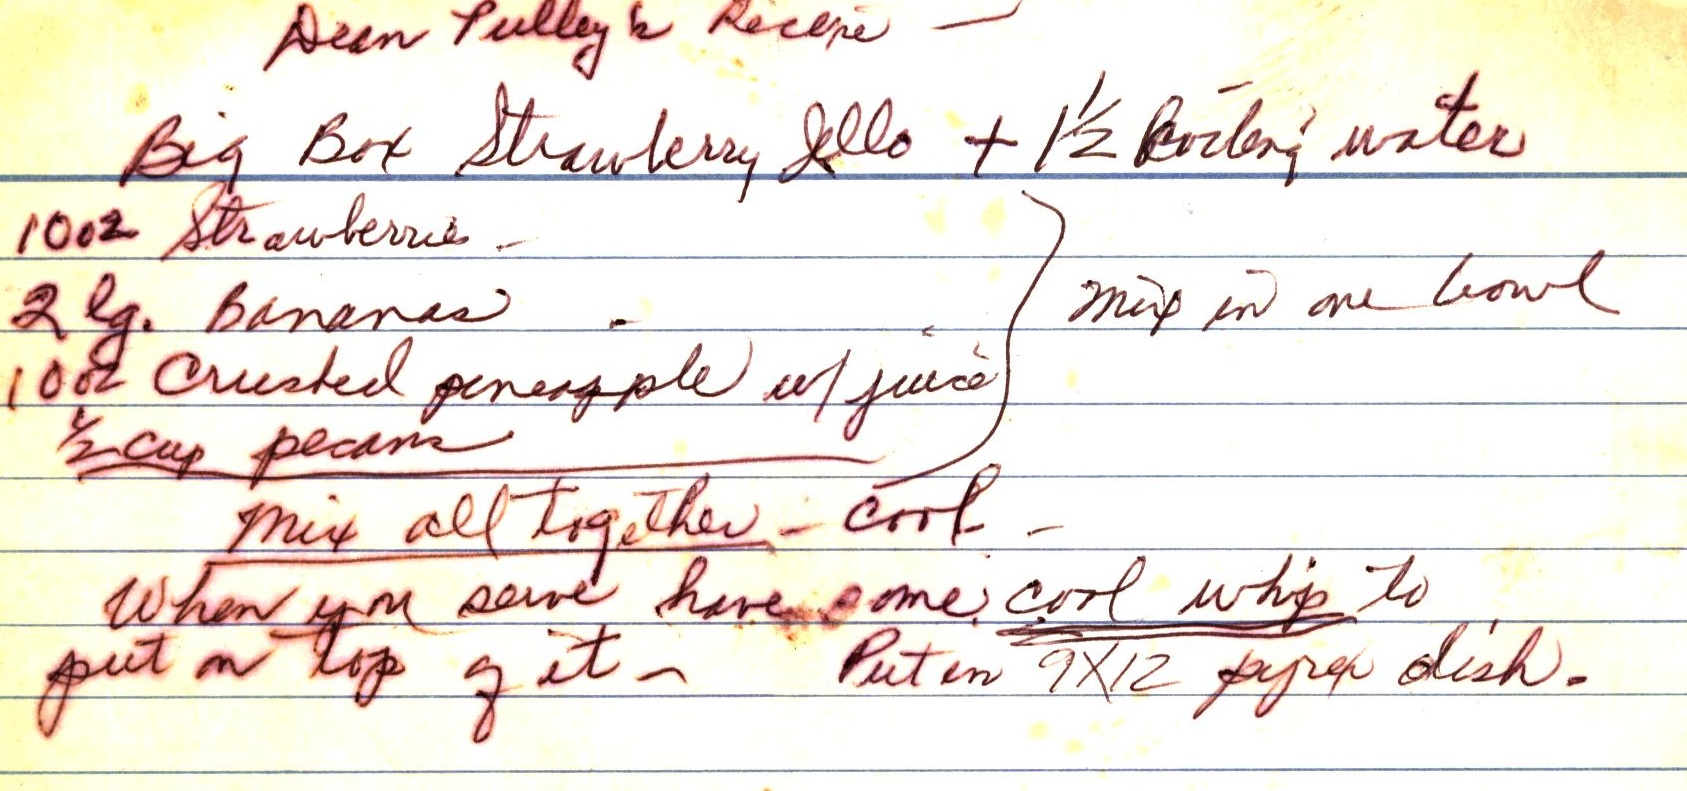 Dean Pulley's Recipe —
Big Box Strawberry Jello + 1½ Boiling water
10oz Strawberries -
2 lg. Bananas -
Mix in one bowl
10oz Crushed pineapple w/ juice
½ cup pecans
Mix all together - Cool -
When you serve have some cool whip to
put on top of it - Put in 9X12 pyrex dish.